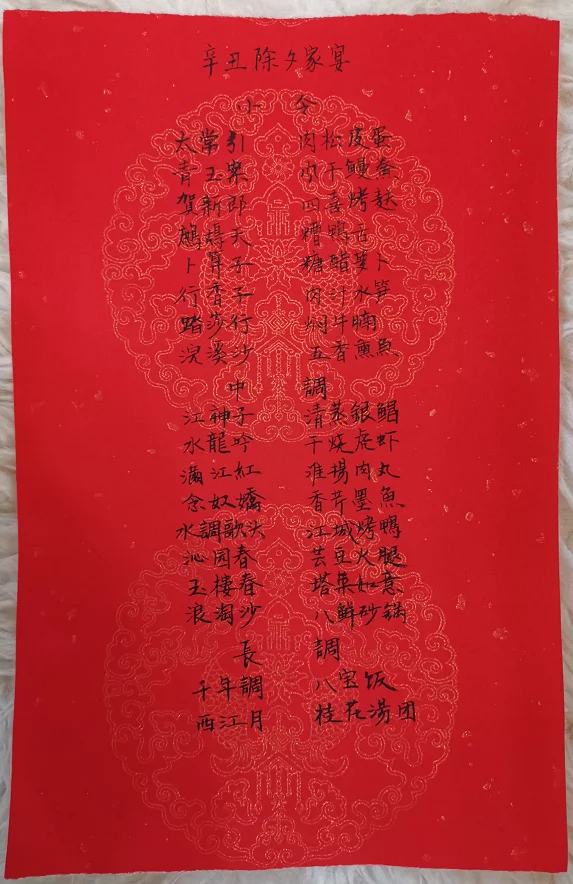 辛丑除夕家宴
小 令
太常引 肉松皮蛋
青玉案 风干鳗鲞
賀新郎 四喜烤麸
鹧鸪天 糟鴨舌
卜算子 糖醋萝卜
行香子 肉汁水笋
踏莎行 焖牛腩
浣溪沙 五香熏魚
中 調
江神子 清蒸銀鲳
水龍吟 干烧虎虾
滿江紅 淮揚肉丸
念奴嬌 香芹墨魚
水調歌头 江城烤鴨
沁园春 芸豆火腿
玉楼春 塔菜如意
浪淘沙 八鲜砂锅
長 調
千年調 八宝饭
西江月 桂花湯团